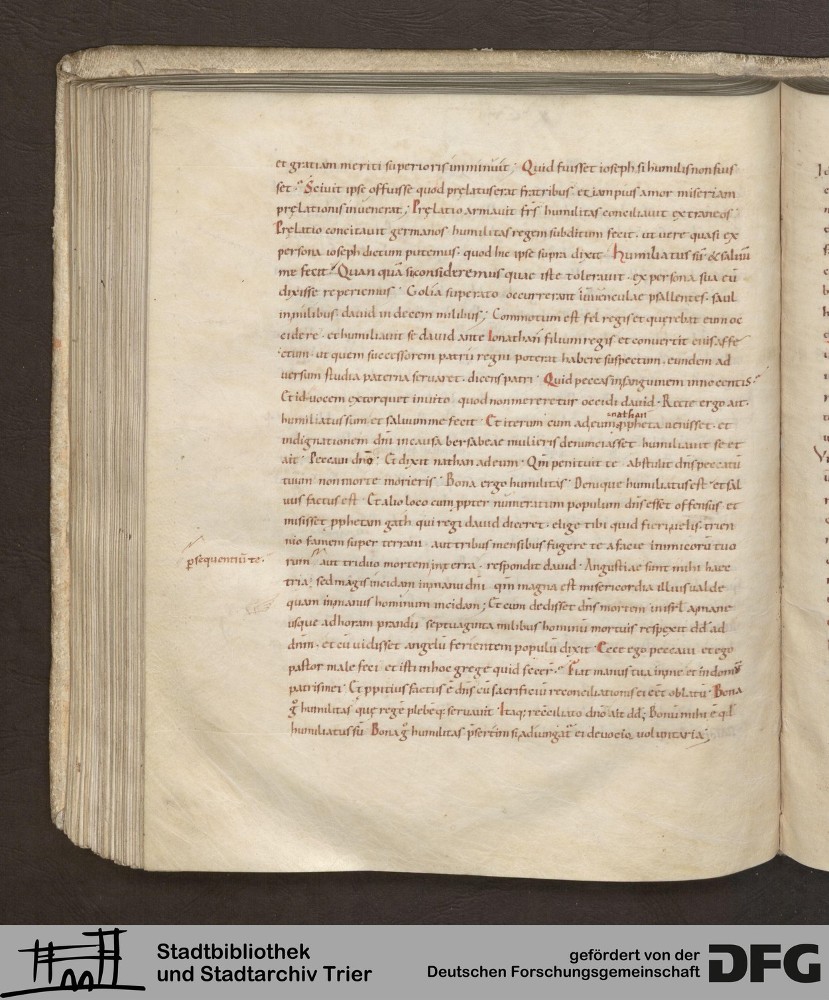 et gratiam meriti superioris imminuit; Quid fuisset ioseph si humilis non fuis
set? Sciuit ipse offuisse quod pręlatus erat fratribus et iam pius amor miseriam
pręlationis inuenerat; Pręlatio armauit frs humilitas conciliauit extraneos
Prelatio concitauit germanos humilitas regem subditum fecit. ut uere quasi ex
persona ioseph dictum putemus. quod hic ipse supra dixit. humiliatus sum & saluum
me fecit. Quan quā si consideremus quae iste tolerauit. ex persona sua eū
dixisse reperiemus. Golia superato occurrerant iuuenculae psallentes. saul
in milibus. dauid in decem milibus; Commotum est fel regis et quęrebat eum oc
cidere. et humiliauit se dauid ante Ionathan filium regis. et conuertit eius affe
ctum. ut quem successorem patrii regni poterat habere suspectum. eundem ad
uersum studia paterna seruaret. dicens patri. Quid peccas in sanguinem innocentis.
Et id uocem extorquet inuito. quod non mereretur occidi dauid. Recte ergo ait.
humiliatus sum et saluum me fecit. Et iterum cum ad eum nathan ppheta uenisset. et
indignationem dni in causa bersabeae mulieris denunciasset humiliauit se et
ait. Peccaui dno. Et dixit nathan ad eum. Qm penituit te abstulit dns peccatū
tuum non morte morieris. Bona ergo humilitas. Denique humiliatus est et sal
uus factus est. Et alio loco cum ppter numeratum populum dns esset offensus et
misisset pphetam gath qui regi dauid diceret. elige tibi quid fieri uelis. trien
nio famem super terram. aut tribus mensibus fugere te a facie inimicorū tuo
psequentiū te.
rum aut triduo mortem in terra. respondit dauid. Angustiae sunt mihi haec
tria; sed magis incidam in manu dni qm magna est misericordia illius ualde
quam in manus hominum incidam; Et cum dedisset dns mortem in isrl a mane
usque ad horam prandii septuaginta milibus hominū mortuis respexit dd ad
dnm. et cū uidisset angelū ferientem populū dixit. Ecce ego peccaui et ego
pastor male feci et isti in hoc grege quid fecer. Fiat manus tua in me et in domū
patris mei. Et ppitius factus ē dns cū sacrificiū reconciliationis ei eēt oblatū. Bona
g humilitas quę regē plebēq seruauit. Itaq; reciliato dno ait dd; Bonū mihi ē qd
humiliatus sū. Bona g humilitas psertim si adiungat ei deuotio uoluntaria;
Stadtbibliothek
und Stadtarchiv Trier
gefördert von der
Deutschen Forschungsgemeinschaft
DFG